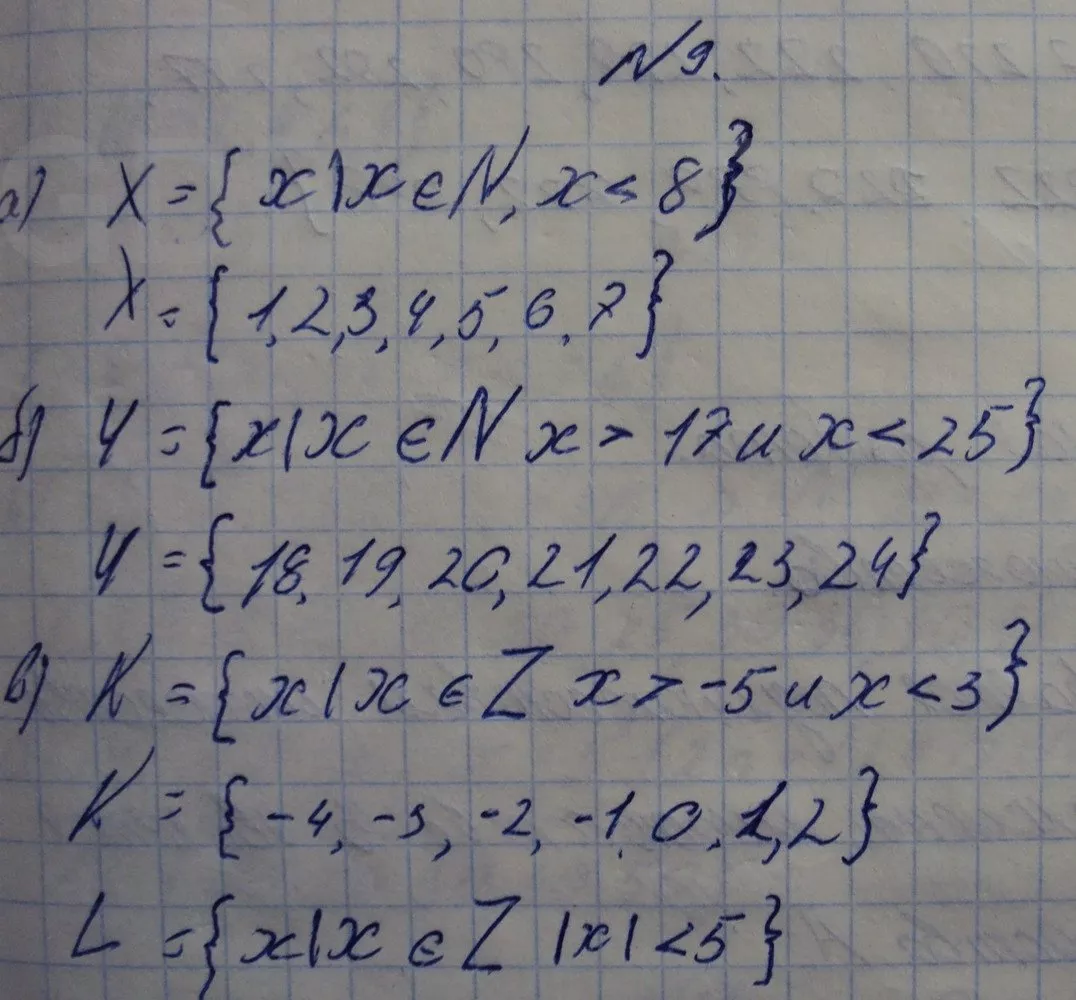 №9.
а) X = { x | x ∈ N, x < 8 }
X = { 1, 2, 3, 4, 5, 6, 7 }
б) Y = { x | x ∈ N x > 17 и x < 25 }
Y = { 18, 19, 20, 21, 22, 23, 24 }
в) K = { x | x ∈ Z x > -5 и x < 3 }
K = { -4, -3, -2, -1, 0, 1, 2 }
L = { x | x ∈ Z |x| < 5 }